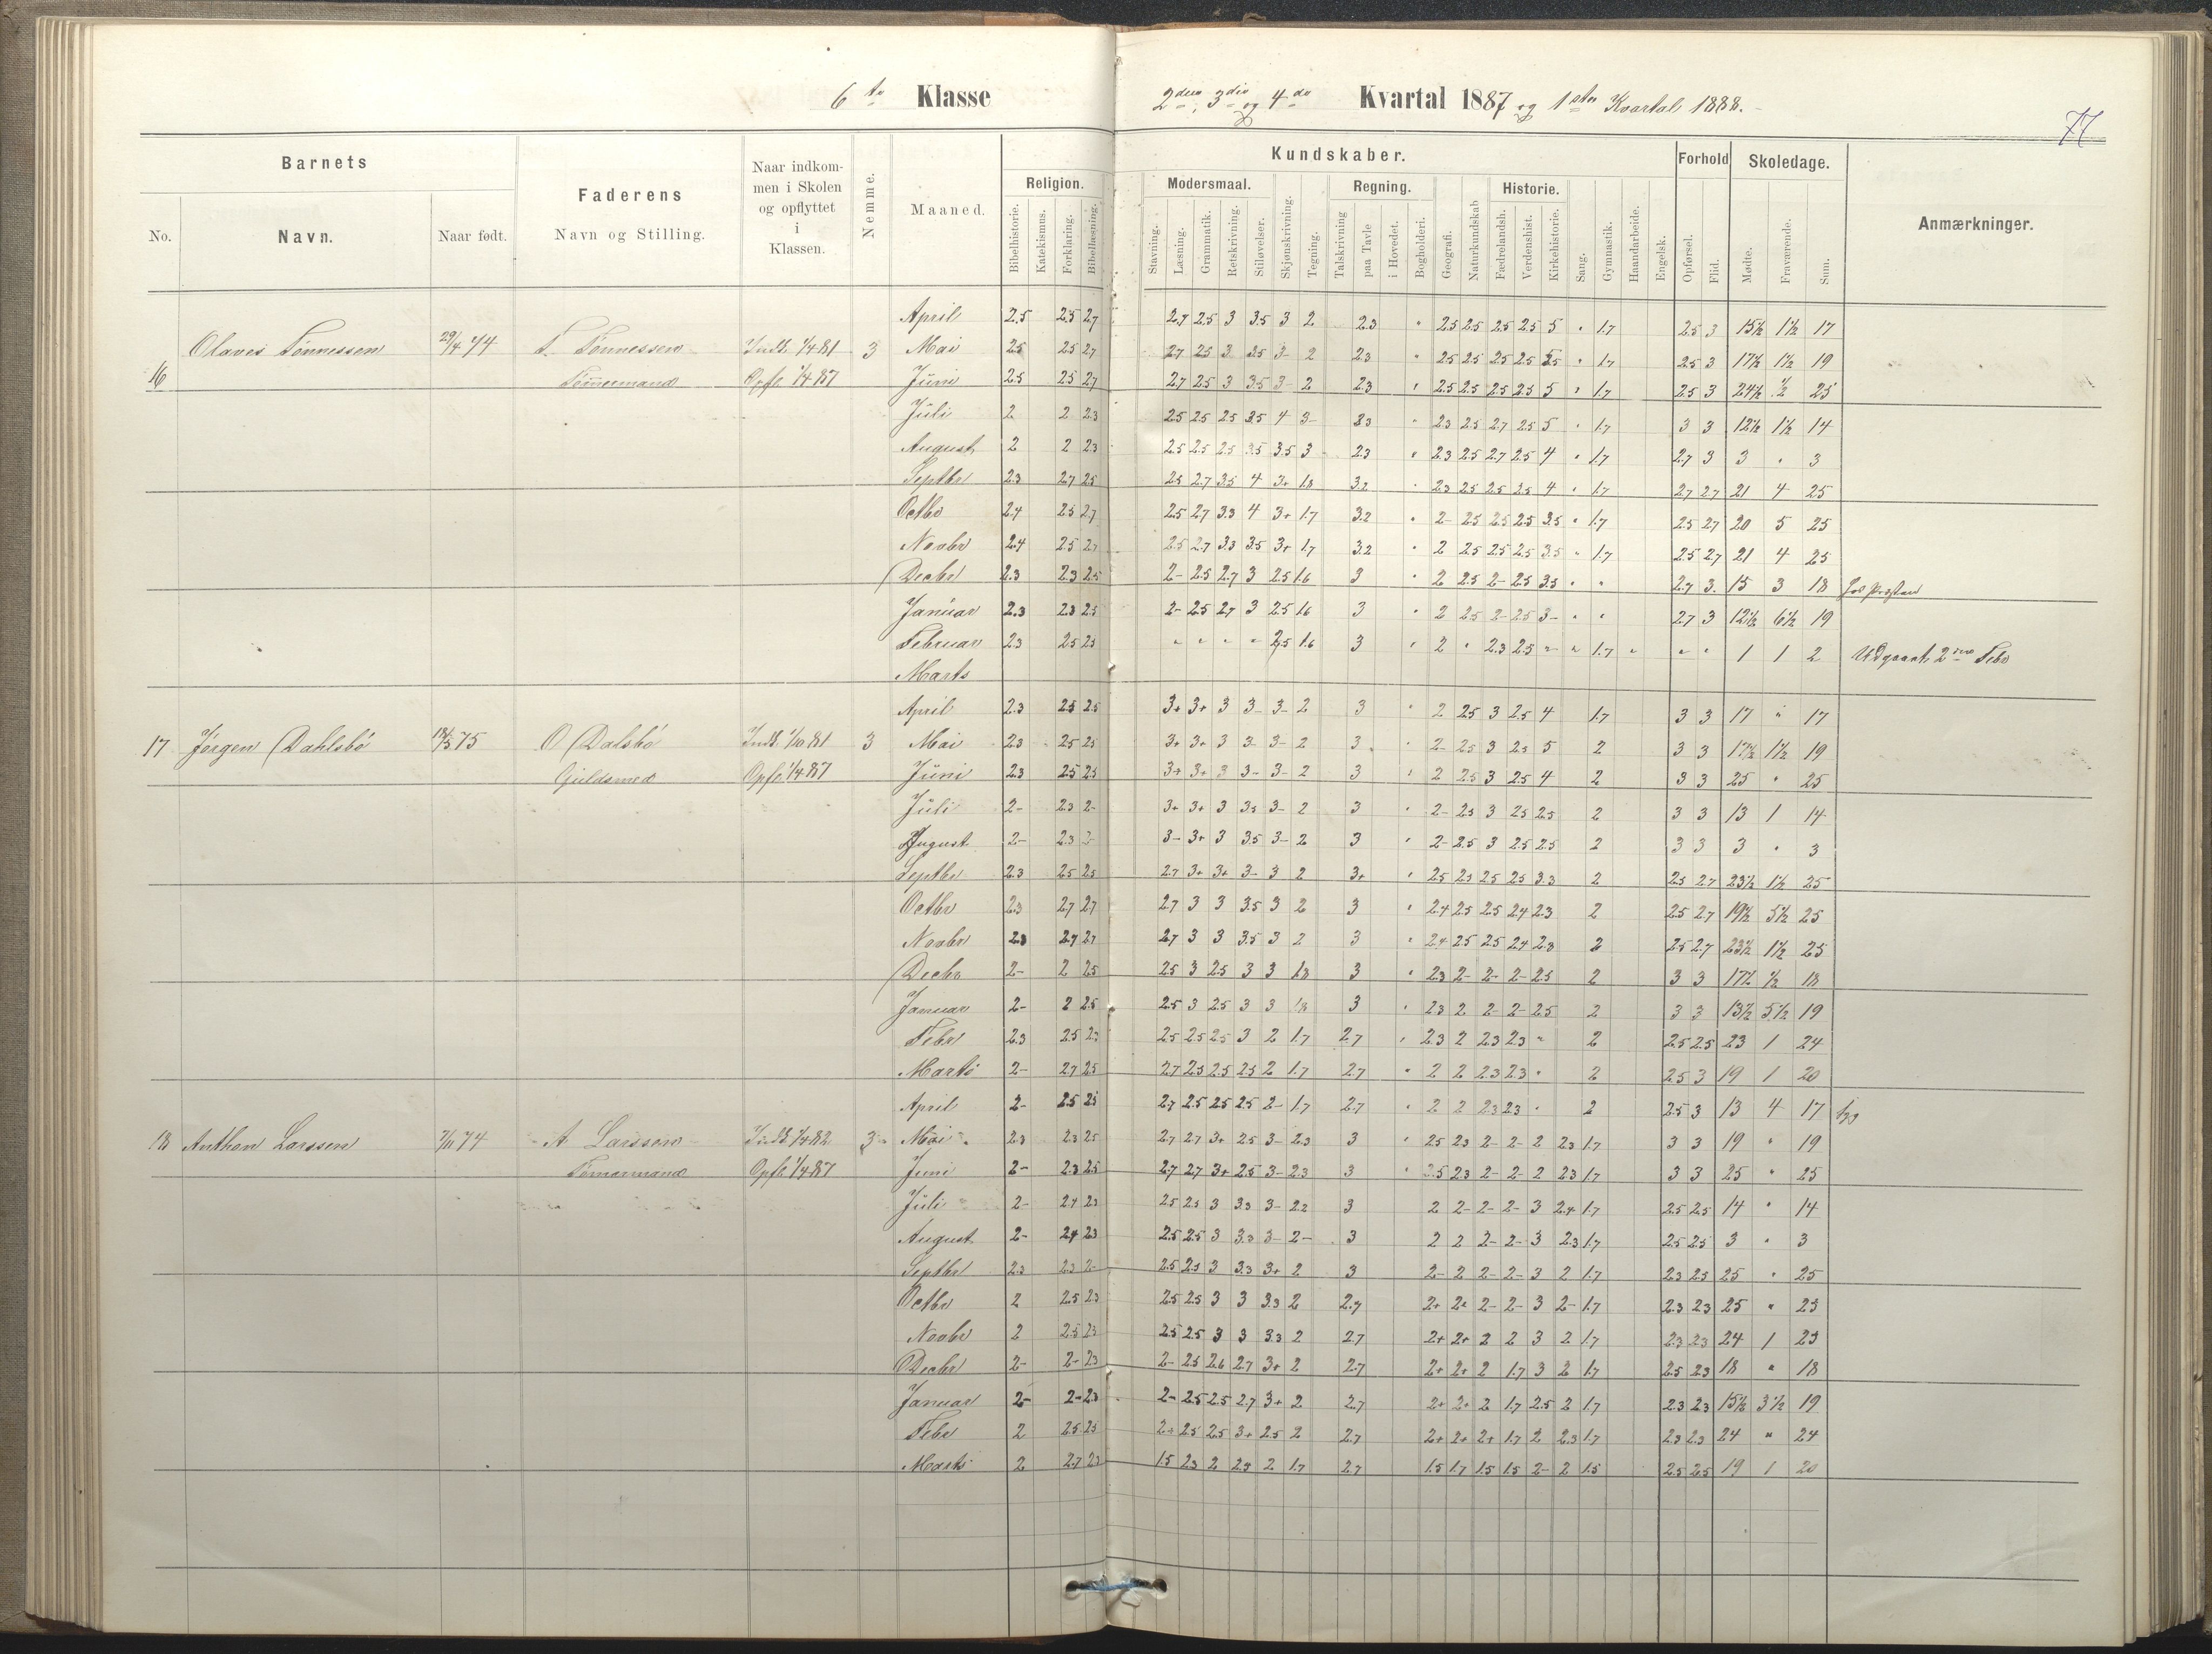 6te Klasse 2den, 3die og 4de Kvartal 1887 og 1ste Kvartal 1888.
77
Barnets
No.
Navn.
Naar født.
Faderens
Navn og Stilling.
Naar indkom-
men i Skolen
og opflyttet
i
Klassen.
Nemme.
Maaned.
Kundskaber.
Religion.
Bibelhistorie.
Katekismus.
Forklaring.
Bibellæsning.
Modersmaal.
Stavning.
Læsning.
Grammatik.
Retskrivning.
Stiløvelser.
Skjønskrivning.
Tegning.
Regning.
Talskrivning
paa Tavle
i Hovedet.
Bogholderi.
Geografi.
Naturkundskab
Historie.
Fædrelandsh.
Verdenshist.
Kirkehistorie.
Sang.
Gymnastik.
Haandarbeide.
Engelsk.
Forhold
Opførsel.
Flid.
Skoledage.
Mødte.
Fraværende.
Sum.
Anmærkninger.
April 2.5 2.5 2.7 2.7 2.5 3 3.5 3 2 2.3 " 2.5 2.5 2.5 2.5 5 " 1.7 2.5 3 15½ 1½ 17
Olaves Tønnessen 29/4 74 T. Tønnessen Indk 1/4 81 3 Mai 2.5 2.5 2.7 2.7 2.5 3 3.5 3- 2 2.3 " 2.5 2.5 2.5 2.5 3.5 " 1.7 2.5 3 17½ 1½ 19
16 Tømmermand Opfl 1/4 87 Juni 2.5 2.5 2.7 2.7 2.5 3 3.5 3- 2 2.3 " 2.5 2.5 2.5 2.5 5 " 1.7 2.5 3 24½ ½ 25
Juli 2 2 2.3 2.5 2.5 2.5 3.5 4 3- 3.3 " 2.3 2.5 2.7 2.5 5 " 1.7 3 3 12½ 1½ 14
August 2 2 2.3 2.5 2.5 2.5 3.5 3.5 3 2.3 " 2.3 2.5 2.7 2.5 4 " 1.7 2.7 3 3 " 3
Septbr 2.3 2.7 2.5 2.5 2.7 3.5 4 3+ 1.8 3.2 " 2.3 2.5 2.5 2.5 4 " 1.7 2.7 2.7 21 4 25
Octbr 2.4 2.5 2.7 2.5 2.7 3.3 4 3+ 1.7 3.2 " 2- 2.5 2.5 2.5 3.5 " 1.7 2.5 2.7 20 5 25
Novbr 2.4 2.5 2.7 2.5 2.7 3.3 3.5 3+ 1.7 3.2 " 2 2.5 2.5 2.5 3.5 " 1.7 2.5 2.7 21 4 25
Decbr 2.3 2.3 2.5 2- 2.5 2.7 3 2.5 1.6 3 " 2 2.5 2- 2.5 3.5 " " 2.7 3. 15 3 18
Januar 2.3 2.3 2.5 2- 2.5 2.7 3 2.5 1.6 3 " 2 2.5 2- 2.5 3- " " 2.7 3 12½ 6½ 19
Februar 2.3 2.5 2.5 " " " " 2.5 1.6 3 " 2 " 2.3 2.5 " " 1.7 " " " 1 1 2 Udgaaet 2den Febr
Marts
April 2.3 2.5 2.5 3+ 3+ 3 3- 3- 2 3 " 2 2.5 3 2.5 4 1.7 3 3 17 " 17
17 Jørgen Dahlsbó 18/5 75 O Dalsbó Indk 1/10 81 3 Mai 2.3 2.5 2.5 3+ 3+ 3 3- 3- 2 3 " 2- 2.5 3 2.5 5 2 3 3 17½ 1½ 19
Guldsmed Opfl 1/4 87 Juni 2.3 2.5 2.5 3+ 3+ 3 3- 3- 2 3 " 2 2.5 3 2.5 4 2 3 3 25 " 25
Juli 2- 2.3 2- 3+ 3+ 3 3.5 3- 2 3 " 2- 2.5 3 2.5 2.5 2 3 3 13 1 14
August 2- 2.3 2- 3- 3+ 3 3.5 3- 2 3 " 2- 2.5 3 2.5 2.5 2 3 3 3 " 3
Septbr 2.3 2.5 2.5 2.7 3+ 3+ 3- 3 2 3+ " 2.5 2.5 2.5 2.5 3.3 2 2.5 2.7 23½ 1½ 25
Octbr 2.3 2.7 2.7 2.7 3 3 3.5 3 2 3 " 2.4 2.5 2.5 2.4 2.3 2 2.5 2.7 19½ 5½ 25
Novbr 2.3 2.7 2.7 2.7 3 3 3.5 3 2 3 " 2.4 2.5 2.5 2.4 2.3 2 2.5 2.7 23½ 1½ 25
Decbr 2- 2 2.5 2.5 3 2.5 3 3 1.8 3 " 2.3 2- 2- 2- 2.5 2 3 3 17½ ½ 18
Januar 2- 2 2.5 2.5 3 2.5 3 3 1.8 3 " 2.3 2 2- 2- 2.5 2 3 3 13½ 5½ 19
Febr 2.3 2.5 2.3 2.5 2.5 2.5 3 2 1.7 2.7 " 2.3 2 2.3 2.3 " 2 2.5 2.5 23 1 24
Marts 2- 2.7 2.5 2.7 2.5 2.5 2.5 2 1.7 2.7 " 2 2 2.3 2.3 " 2 2.5 3 19 1 20
April 2- 2.5 2.5 2.7 2.5 2.5 2.5 2- 1.7 2.7 " 2 2 2.3 2.3 " 2 2.5 3 13 4 17
18 Anthon Larssen 7/11 74 A Larssen Indk 1/4 82 3 Mai 2.3 2.3 2.5 2.7 2.7 3+ 2.5 3- 2.3 3 " 2.5 2.3 2- 2- 2 2.3 1.7 3 3 19 " 19
Tømmermand Opfl 1/4 87 Juni 2- 2.3 2.5 2.7 2.7 3+ 2.5 3- 2.3 3 " 2.5 2.3 2- 2- 2 2.3 1.7 3 3 25 " 25
Juli 2- 2.4 2.3 2.5 2.5 3 3.3 3- 2.2 3 2 2- 2- 2- 3 2.4 1.7 2.5 2.5 14 " 14
August 2- 2.4 2.3 2.5 2.5 3 3.3 3- 2- 3 2 2 2- 2- 3 2.3 1.7 2.5 2.5 3 " 3
Septbr 2.3 2.3 2- 2.5 2.5 3 3.3 3+ 2 3 2- 2 2- 2- 3 2 1.7 2.3 2.5 25 " 25
Octbr 2 2.5 2.3 2.5 2.5 3 3 3.3 2 2.7 2+ 2+ 2- 2- 3 2- 1.7 2.3 2.3 25 " 25
Novbr 2 2.5 2.3 2.5 2.5 3 3 3.3 2 2.7 2+ 2+ 2 2 3 2 1.7 2.3 2.3 24 1 25
Decbr 2- 2- 2.3 2- 2.5 2.6 2.7 3+ 2 2.7 2+ 2+ 2 1.7 3 2 1.7 2.5 2.3 18 " 18
Januar 2- 2- 2.3 2- 2.5 2.5 2.7 3+ 2 2.7 2+ 2+ 2 1.7 2.5 2 1.7 2.3 2.3 15½ 3½ 19
Febr 2 2.5 2.5 2+ 2.5 2.5 3+ 2.5 2 2.7 2+ 2+ 2+ 1.7 2 2.3 1.7 2.3 2.3 24 " 24
Marts 2 2.7 2.3 1.5 2.3 2 2.4 2 1.7 2.7 1.5 1.7 1.5 1.5 2- 2 1.5 2.5 2.5 19 1 20